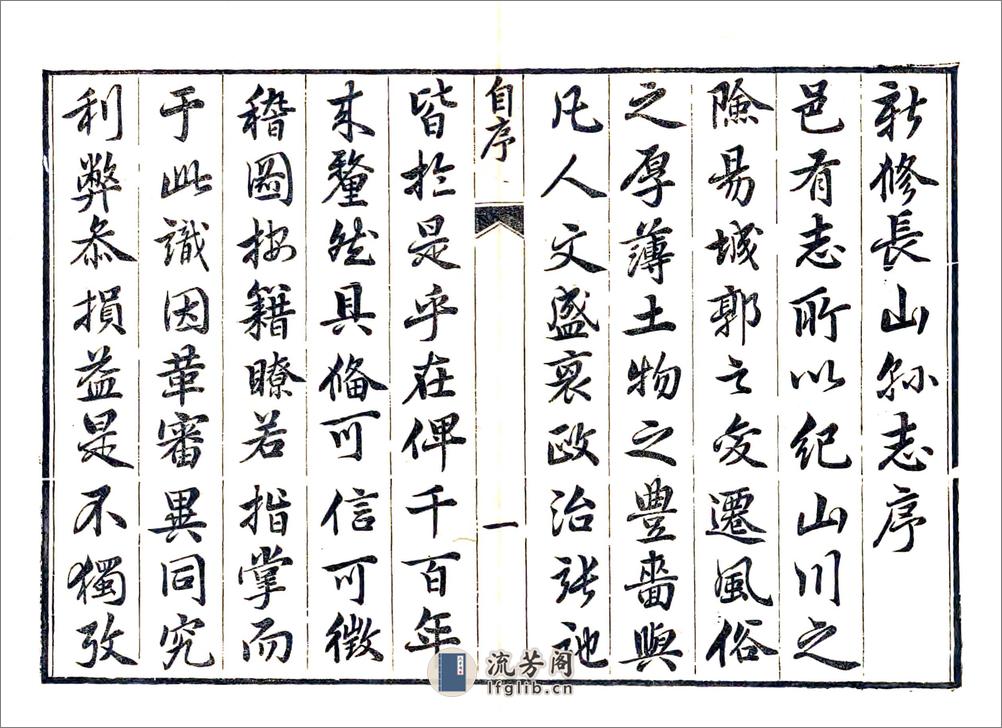 新修長山縣志序
邑有志所以紀山川之
險易城郭之变遷風俗
之厚薄土物之豊嗇與
凡人文盛衰政治張弛
自序
一
皆於是乎在俾千百年
来釐然具俻可信可徵
稽圖按籍瞭若指掌而
于此識因革審異同究
利弊叅損益是不獨攷
流芳阁
lfglib.cn